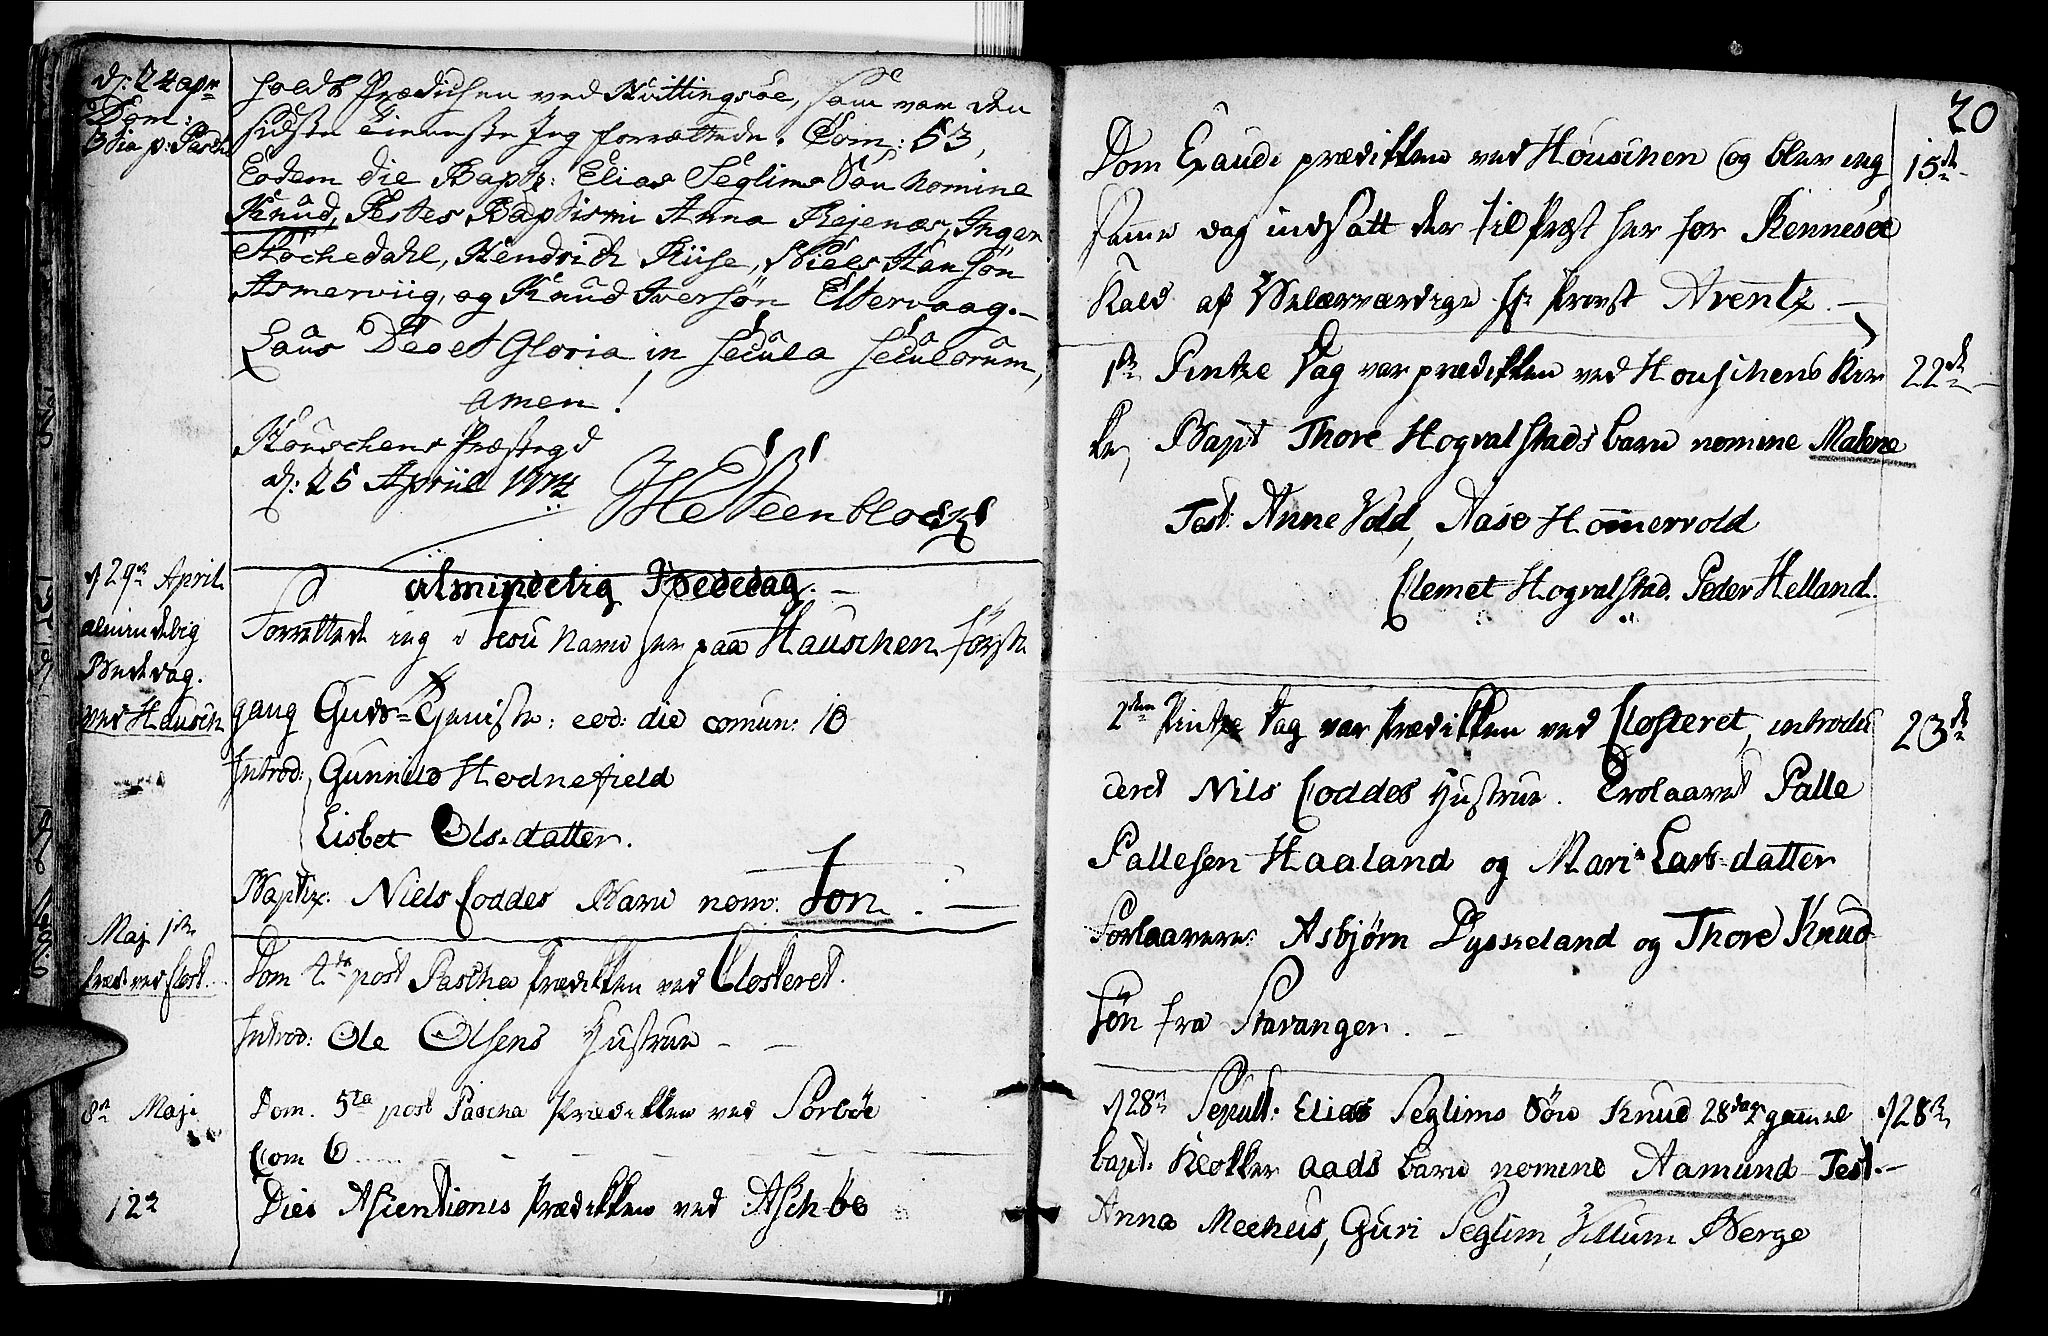 d: 24 apr
Dom:
3tia p: Pasch
holdt Prædichen ved Hvittingsöe, som var den
sidste Tieneste jeg forrættede. Com: 53,
Eodem die Bapt: Elias Seglims Sön nomine
Knud, Testes Baptismi Anna Rejenæs, Inger
Stöchedahl, Hendrich Riise, Niels Hansön
Asmerviig, og Knud Iversön Eltervaag.-
Laus Deo et Gloria in secula seculorum,
amen!
Houschens Præstegd
d: 25 Apriil 1774
HSteenbloch
d 29de April
almindelig
Bededag.
ved Hausch
almindelig Bededag.-
Forrettede ieg i Jesu Navn her paa Hauschen förste
gang Guds-Tieniste: eod: die comun: 10
Introd: Gunnild Hodnefield
Lisbet Olsdatter.
Baptiz: Niels Coddes Barn nom: Jon.
Maj 1ste
Præd ved Clost
Dom 4ta post Pascha Prædikken ved Closteret.
Introd: Ole Olsens Hustrue - -
8de Maji
Dom. 5ta post Pascha Prædikken ved Sorböe
Com 6
12te
Diei Ascentionis Prædikken ved Aschöe
20
Dom Exaudi prædikken ved Houschen og blev ieg
samme dag indsatt der til Præst her for Rennesöe
Kald af Velærværdige Hr Provst Arentz.-
15de
1ste Pintze Dag var prædikken ved Houschens Kir
22de
ke, Bapt Thore Hogvalstads barn nomine Malene
Test: Anne Vold, Aase Hommervold
Clemet Hogvalstad. Peder Helland.
2den Pintze Dag var Prædikken ved Closteret, introdu
23de
ceret Nils Coddes Hustrue. Trolovet Palle
Pallesen Haaland og Mari Lars-datter
Forlovere: Asbjørn Dysseland og Thore Knud
sön fra Stavanger.-
d 28de Sepult: Elias Seglims Sön Knud 28 dage gammel
d 28de
bapt. Klokker Aads barn nomine Aamund Test.
Anna Meehus, Guri Seglim, Villum Berge